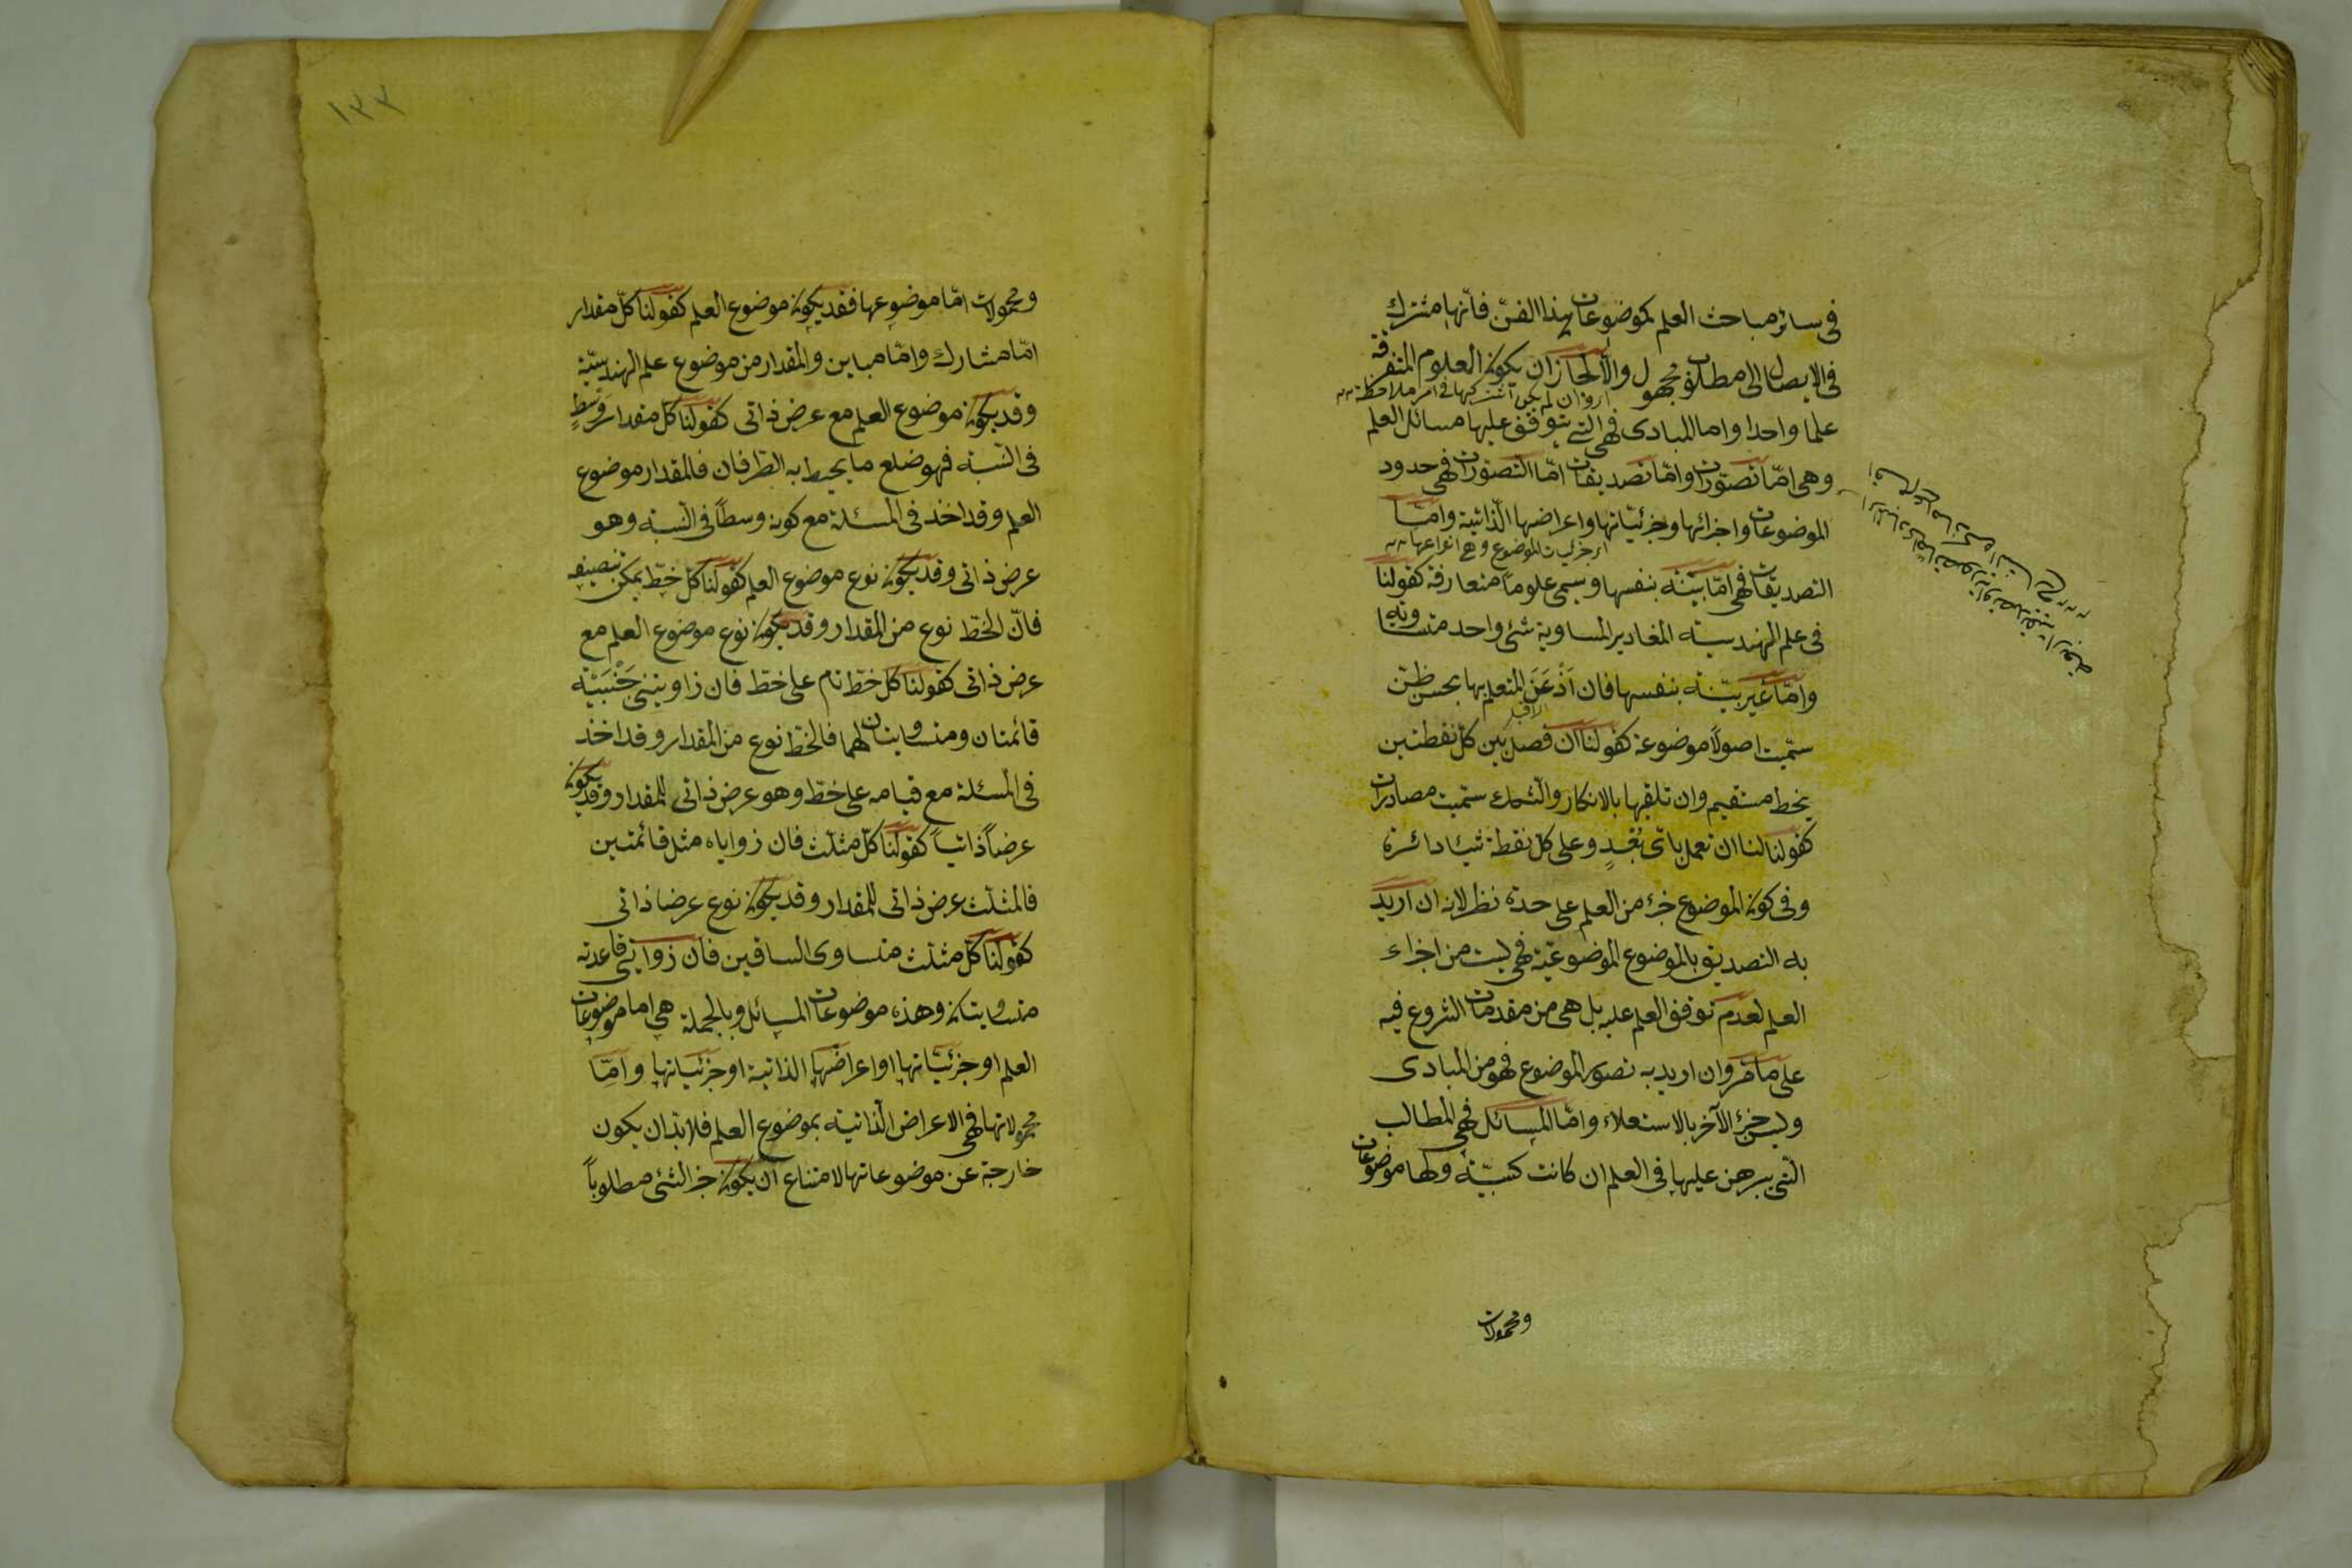 في سائر مباحث العلم كموضوعات هذا الفنّ فانّها مشترك
في الايصال الى مطلوب مجهول والاّ لجاز ان يكون العلوم المتفرقة
ار وان لم يكن اشتركها في امر ملاحظة
علما واحدا واما المبادى فهى التي يتوقف عليها مسائل العلم
وهى امّا تصوّرات وامّا تصديقات امّا التصورات فهى حدود
الموضوعات واجزائها وجزئيّاتها واعراضها الذّاتية وامّا
ار جزئيات الموضوع وهى انواعها
التصديقات فهى امّا بيّنة بنفسها ويسمى علوماً متعارفة كقولنا
في علم الهندسيّة المغادير المساوية شئ واحد متساوية
وامّا غير بيّنة بنفسها فان اَذْعَنَ المتعلم بها بحسن ظنّ
سمّيت اصولاً موضوعة كقولنا ان فصل بين كل نقطتين
بخط مستقيم وان تلقيها بالانكار والشك سمّيت مصادرات
كقولنا لنا ان نعمل باىّ بُعْدٍ وعلى كل نقطة شيئا دائرة
وفى كون الموضوع جزء من العلم على حدة نظر لانه ان اريد
به التصديق بالموضوع الموضوعيّة فهى ليست من اجزاء
العلم لعدم توقف العلم عليه بل هى من مقدمات الشروع فيه
على ما مرّ وان اريد به تصور الموضوع فهو من المبادى
وليس جزء الآخر بالاستعلاء وامّا المسائل فهى المطالب
الّتى يبرهن عليها في العلم ان كانت كسبيّة ولها موضوعات
ومحمولات
١٣٣
ومحمولات امّا موضوعها فقد يكون موضوع العلم كقولنا كلّ مقدار
امّا مشارك وامّا مباين والمقدار من موضوع علم الهندسيّة
وقد يكون موضوع العلم مع عرض ذاتى كقولنا كل مقدار وَسَطٍ
في النسبة فهو ضلع ما يحيط به الطرفان فالمقدار موضوع
العلم وقد اخذ فى المسئلة مع كونه وسطاً في النسبة وهو
عرض ذاتى وقد يكون نوع موضوع العلم كقولنا كل خطّ يمكن تنصيفه
فانّ الخطّ نوع من المقدار وقد يكون نوع موضوع العلم مع
عرض ذاتى كقولنا كل خطّ قام على خطّ فان زاويتى جَنْبَيْه
قائمتان ومتساويتان لهما فالخطّ نوع من المقدار وقد اخذ
في المسئلة مع قيامه على خطّ وهو عرض ذاتى للمقدار وقد يكون
عرضاً ذاتياً كقولنا كلّ مثلّث فان زواياه مثل قائمتين
فالمثلّث عرض ذاتى للمقدار وقد يكون نوع عرضا ذاتى
كقولنا كلّ مثلّث متساوى الساقين فان زوايتى قاعدته
متساويتان وهذه موضوعات المسائل وبالجملة هى اما موضوعات
العلم او جزئيّاتها او اعراضها الذاتية او جزئياتها وامّا
محمولاتها فهى الاعراض الّذاتية بموضوع العلم فلا بدّ ان يكون
خارجة عن موضوعاتها لامتناع ان يكون جز الشئ مطلوباً